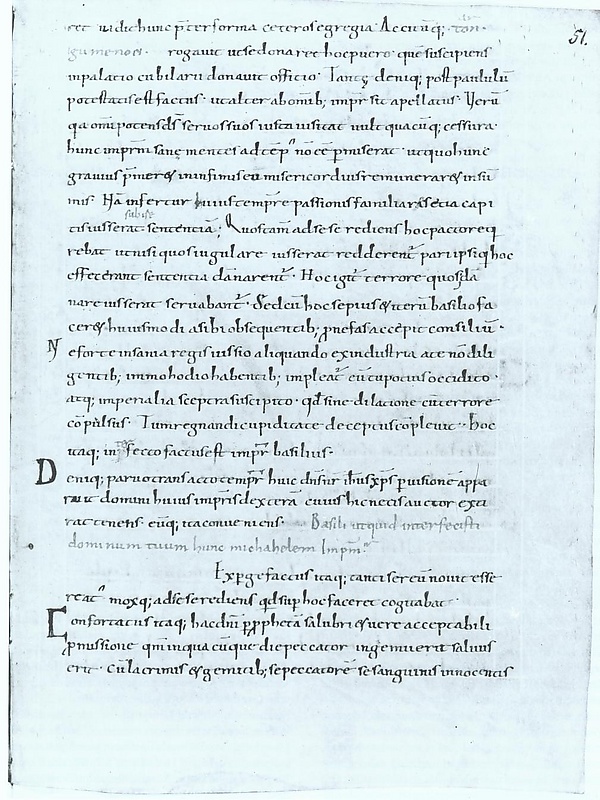 51.
ret uidichunc p̄ter forma ceteros egregia Accitūq;
rogauit ut sedonaret hoc puero quē suscipiens
inpalatio cubilarii donauit officio Tantę deniq; post paululū
potestatis est factus ut alter ab omib; imp̄r sit apellatus Verū
qa omīpotens d̄s seruos suos iusta uisitat uult quacūq; cessura
hunc imp̄rm sanę mentes ad temp̄ nō eē p̄miserat utquo hunc
grauius p̄mer& in infimis eū misericordius remunerar& in sū
mis Hā infertur huius tempre passionis familiar& setia capi
sub ise
tis iusserat sententiā; Quos tam ad se se rediens hoc pacto req
rebat ut nisi quos iugulare iusserat redderent̄ pari ipsiq hoc
effecerant sententia dānarent̄ Hoc igit̄ terrore quos dā
nare iusserat seruabant̄ Sed cū hoc sepius & iterū basilio fa
cer& huiusmodi a sibi obsequentib; p nefas accepit consiliū
N
e forte insania regis iussio aliquando ex industria a te nō dili
gentib; immo hodio habentib; impleat̄ eū tu potius occidito
atq; imperialia sceptra suscipito qd sine dilatione cū terrore
cōpulsus Tum regnandi cupiditate deceptus cōpleuit Hoc
itaq; interfecto factus est imp̄r basilius
Deniq; paruo transacto temp̄r huic dn̄s nr̄ ihus xp̄s p uisionē appa
ruit domini huius imp̄ris dexterā cuius hic necis auctor exti
rat tenens eūq; ita conueniens Basili utquid interfecisti
dominum tuum hunc michahelem Imp̄m
Expgefactus itaq; tanti se reū nouit esse
reat moxq; ad se rediens qd sup hoc faceret cogitabat
Confortatus itaq; hac dn̄i p pphetā salubri & uere acceptabili
pmissione qm̄ in quacūque die peccator ingemuerit saluus
erit cū lacrimis & gemitib; se peccatorē se sanguinis innocentis